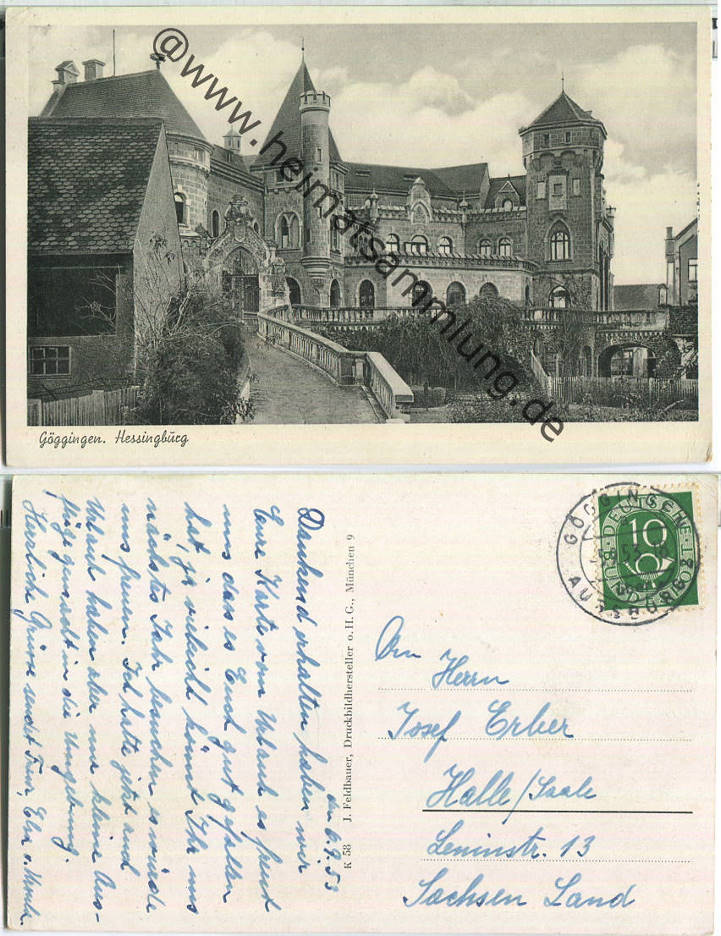 @www.heimatsammlung.de
Göggingen. Hessingburg
den 6.9.53
Dankend erhalten haben wir
Eure Karte vom Urlaub es freut
uns das es Euch gut gefallen
hat, ja vieleicht könnt Ihr uns
nächstes Jahr besuchen es würde
uns freuen. Ich hatte jetzt auch
Urlaub haben aber nur kleine Aus-
flüge gemacht in die Umgebung.
Herzliche Grüsse sendet Euer,
K 58 J. Feldbauer, Druckbildhersteller o.H.G., München 9
GÖGGINGEN
AUGSBURG 2
DEUTSCHE
BUNDESPOST
10
An
Herrn
Josef Erber
Halle/Saale
Leninstr. 13
Sachsen Land